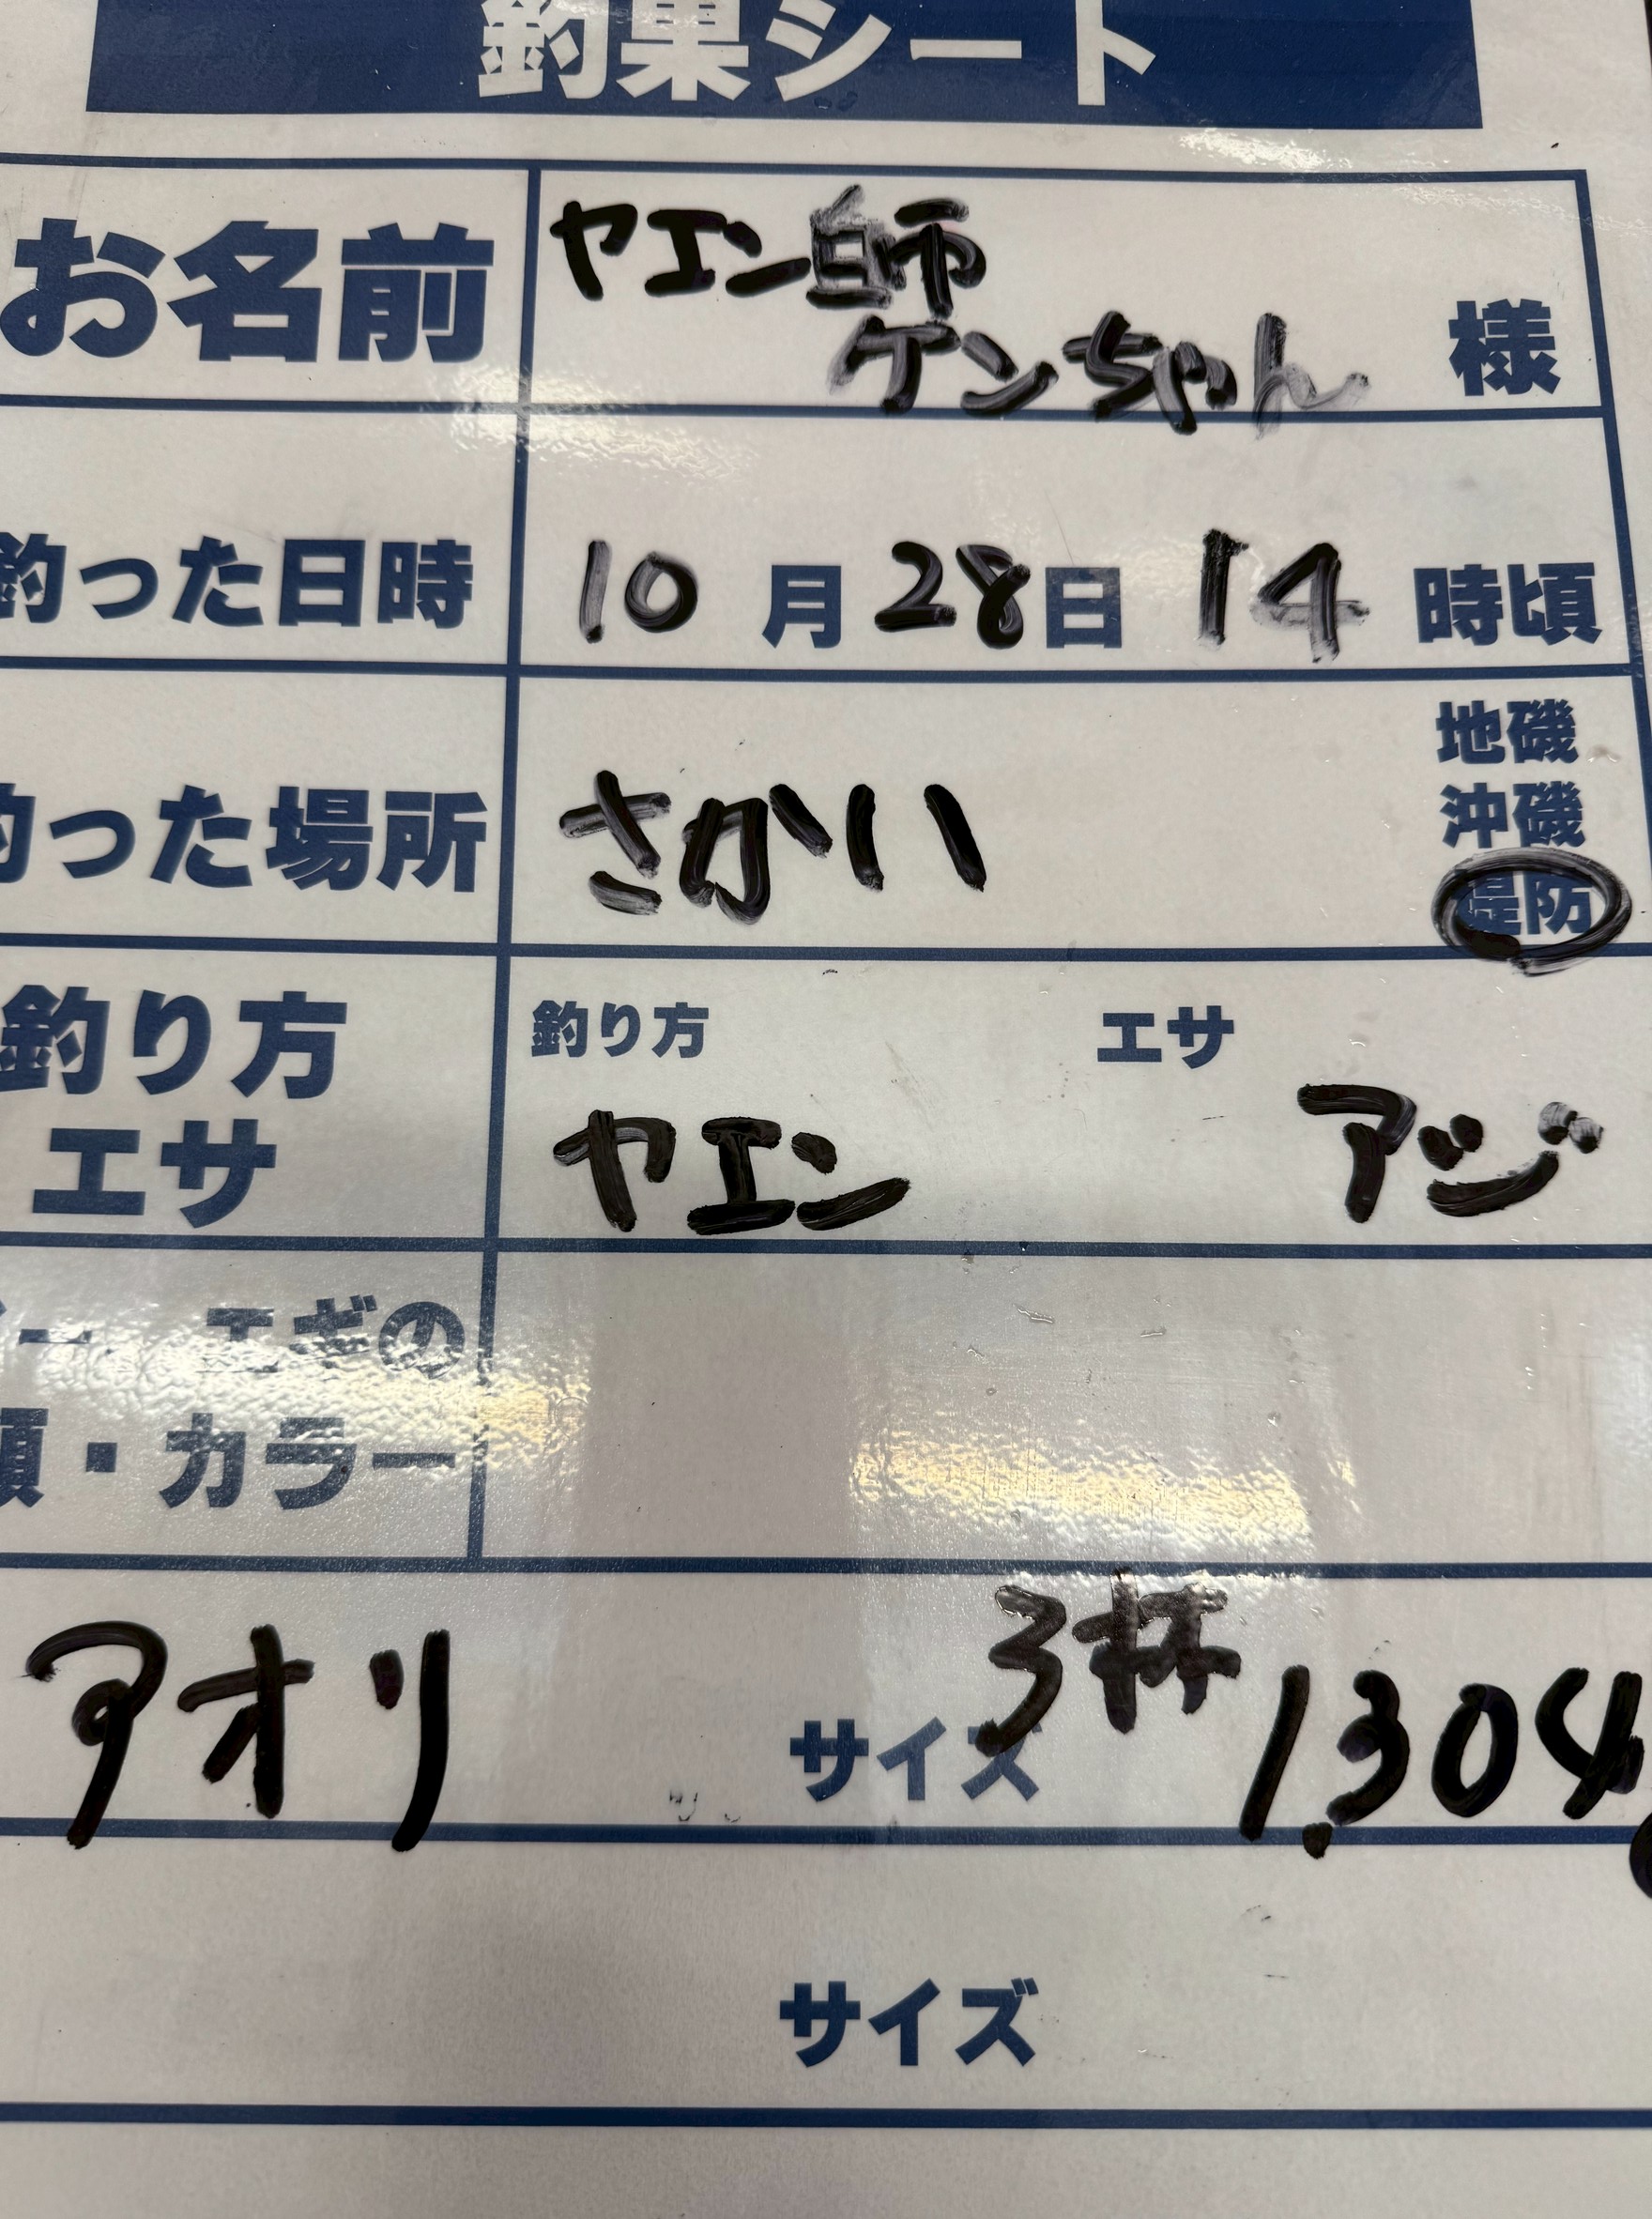 釣果シート
お名前 ヤエン師
ケンちゃん 様
釣った日時 10月28日 14時頃
釣った場所 さかい 地磯
沖磯
堤防
釣り方 釣り方 エサ
エサ ヤエン アジ
エギの
類・カラー
アオリ サイズ 3杯 1.304g
サイズ